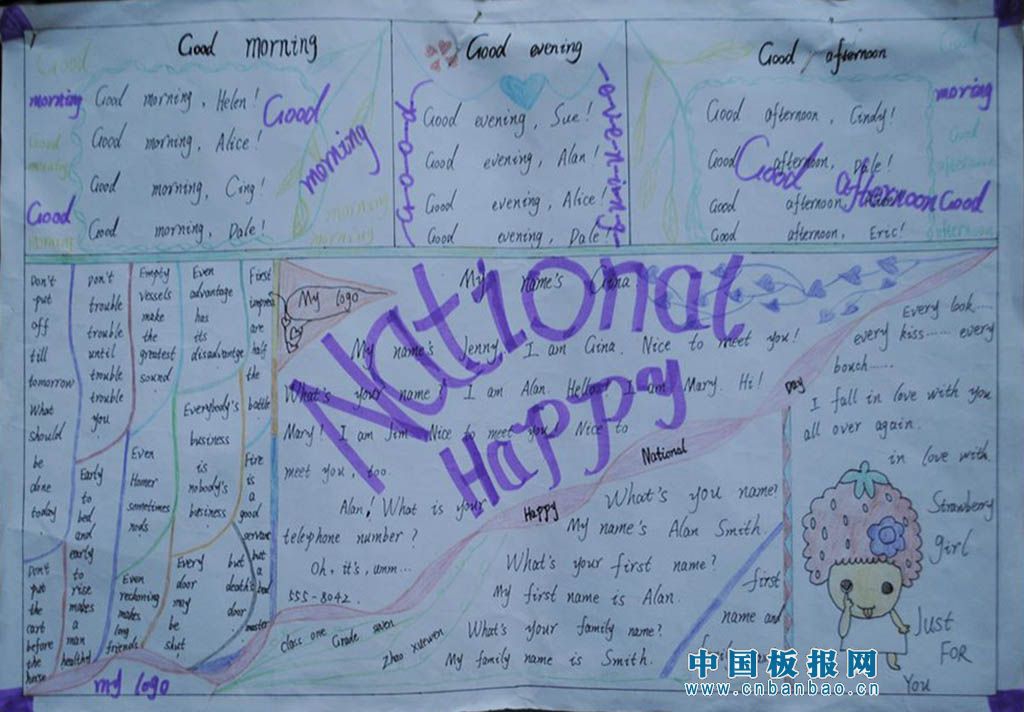 Good morning
Good
morning
Good morning, Helen!
Good morning, Alice!
Good morning, Cing!
Good morning, Dale!
Good
morning
Good
morning
Good evening
Good
evening
Good evening, Sue!
Good evening, Alan!
Good evening, Alice!
Good evening, Dale!
Good afternoon
Good
moring
Good afternoon, Cindy!
Good afternoon, Dale!
Good afternoon,
Good afternoon, Eric!
Good afternoon
Good
Don't
put
off
till
tomorrow
What
should
be
done
today
Don't
put
the
cart
before
the
horse
Don't
trouble
trouble
until
trouble
trouble
you
Early
to
bed
and
early
to
rise
makes
a
man
healthy
Empty
vessels
make
the
greatest
sound
Even
Homer
sometimes
nods
Even
reckoning
makes
long
friends
Even
advantage
has
its
disadvantge
Everybody's
business
is
nobody's
business
Every
door
may
be
shut
but
death's
door
First
impres
are
half
the
battle
Fire
is
a
good
servant
but
a
bad
master
My logo
National
Happy
My name's Gina
My name's Jenny, I am Gina. Nice to meet you!
What's your name? I am Alan. Hello! I am Mary. Hi!
Mary! I am Jim. Nice to meet you! Nice to
meet you, too.
Alan! What is your
telephone number?
Oh, it's, umm...
555-8042.
Happy
National
Day
What's you name?
My name's Alan Smith.
What's your first name?
My first name is Alan.
What's your family name?
My family name is Smith.
first
name and
Every look......
every kiss...... every
bouch......
I fall in love with you
all over again.
in love with
Strawberry
girl
Just
FOR
You
class one Grade seven
Zhao xuewen
my logo
中国板报网
www.cnbanbao.cn